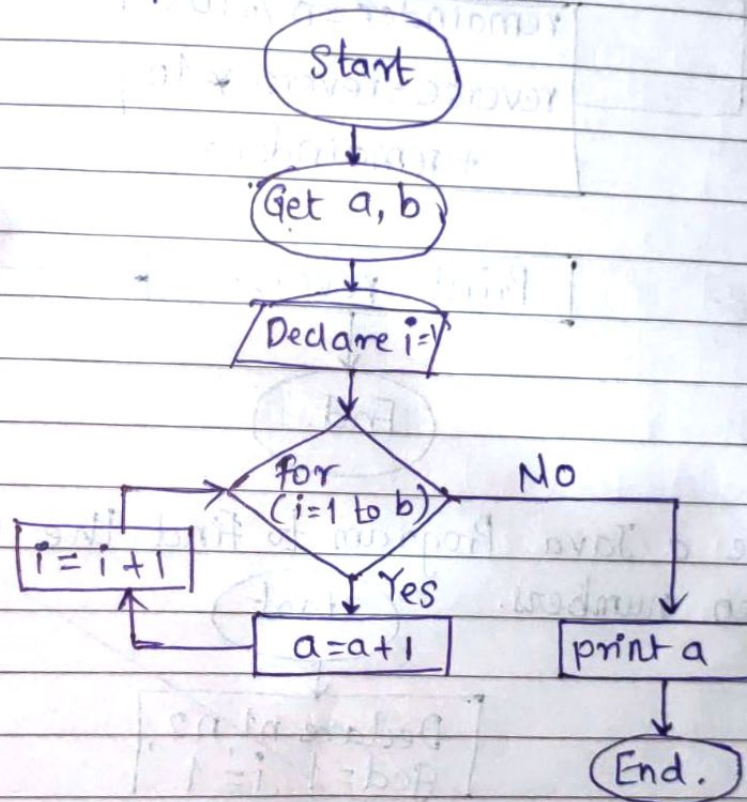 Start
Get a, b
Declare i=1
for
(i=1 to b)
No
Yes
i = i + 1
a = a + 1
print a
End.